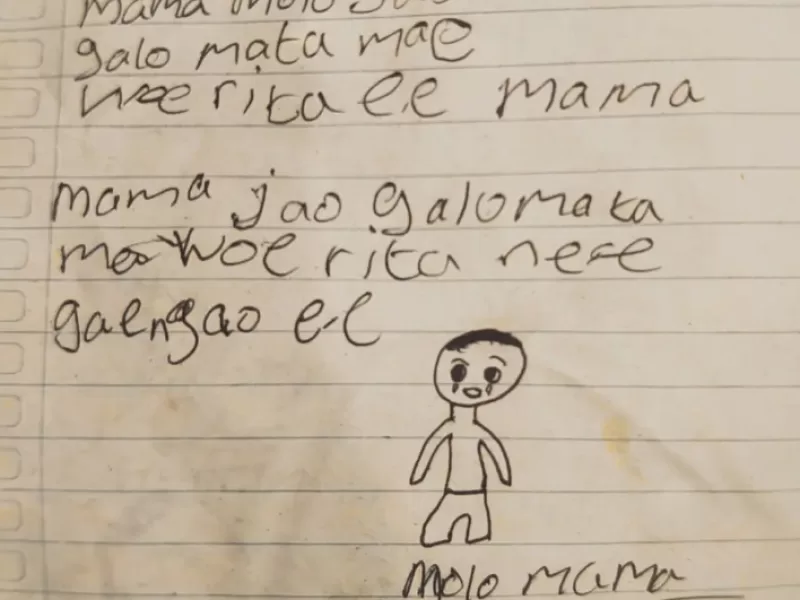 mama molo
galo mata mae
woe rita ee mama
mama jao galomata
woe rita nese
gaengao e-e
molo mama